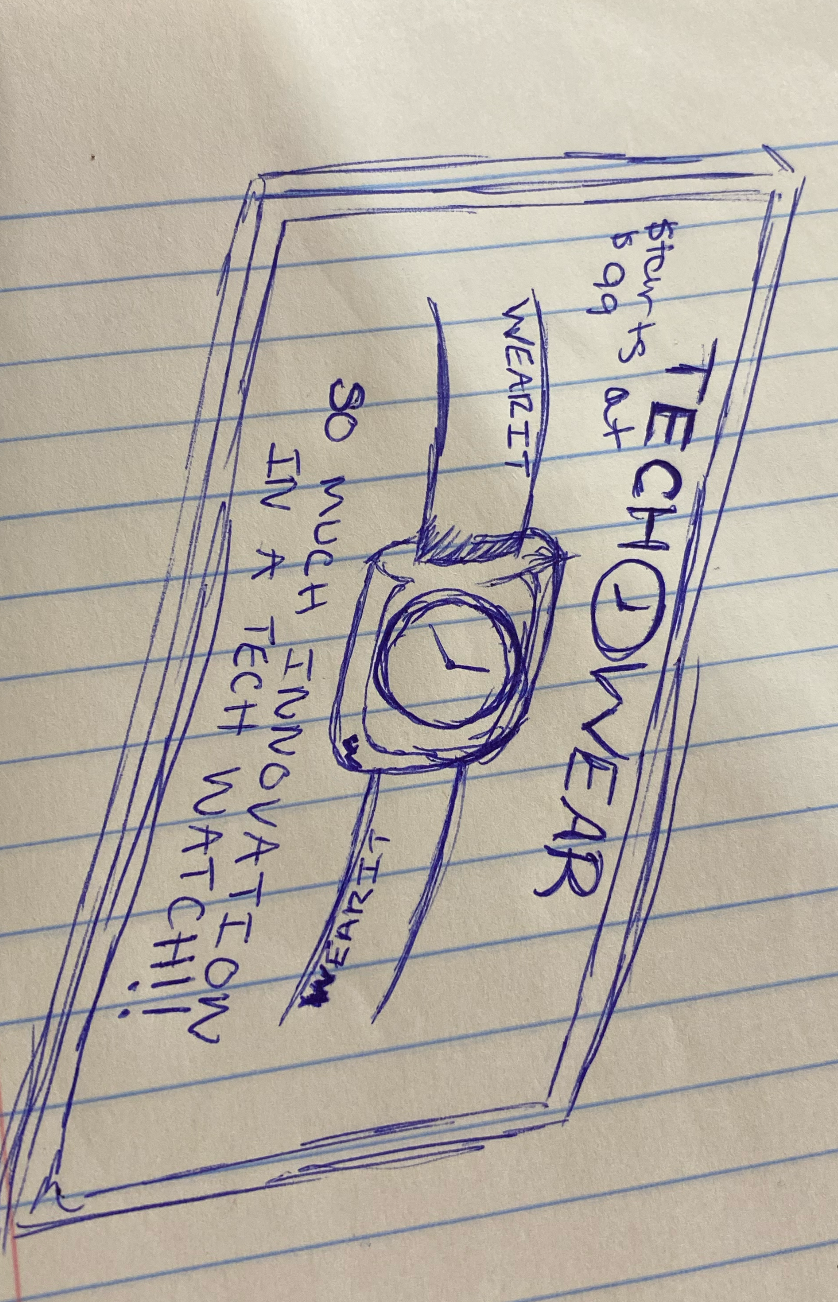 TECHOWEAR
at
$99
WEARIT
WEARIT
W
SO MUCH INNOVATION
IN A TECH WATCH!!